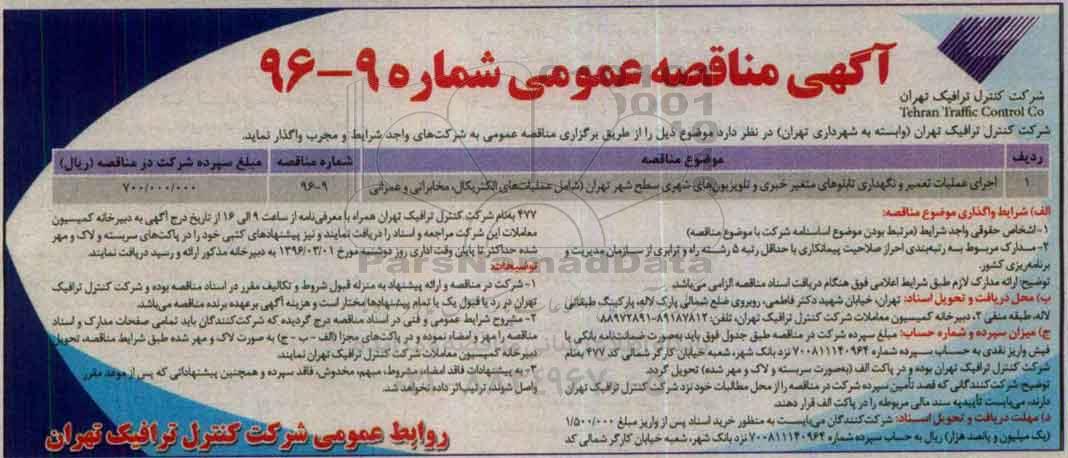 آگهی مناقصه عمومی شماره ۹-۹۶
شرکت کنترل ترافیک تهران
Tehran Traffic Control Co
شرکت کنترل ترافیک تهران (وابسته به شهرداری تهران) در نظر دارد موضوع ذیل را از طریق برگزاری مناقصه عمومی به شرکت‌های واجد شرایط و مجرب واگذار نماید.
ردیف موضوع مناقصه شماره مناقصه مبلغ سپرده شرکت در مناقصه (ریال)
۱ اجرای عملیات تعمیر و نگهداری تابلوهای متغیر خبری و تلویزیون‌های شهری سطح شهر تهران (شامل عملیات‌های الکتریکال، مخابراتی و عمرانی ۹-۹۶ ۷۰۰/۰۰۰/۰۰۰
الف) شرایط واگذاری موضوع مناقصه:
۱-اشخاص حقوقی واجد شرایط (مرتبط بودن موضوع اساسنامه شرکت با موضوع مناقصه)
۲-مدارک مربوط بسه رتبه‌بندی احراز صلاحیت پیمانکاری با حداقل رتبه ۵ رشته راه و ترابری از سازمان مدیریت و
برنامه‌ریزی کشور.
توضیح: ارائه مدارک لازم طبق شرایط اعلامی فوق هنگام دریافت اسناد مناقصه الزامی می‌باشد.
ب) محل دریافت و تحویل اسناد: تهران، خیابان شهید دکتر فاطمی، روبروی ضلع شمالی پارک لاله، پارکینگ طبقاتی
لاله، طبقه منفی ۲، دبیرخانه کمیسیون معاملات شرکت کنترل ترافیک تهران، تلفن: ۸۹۱۸۷۸۱۲-۸۸۹۷۲۸۹۱
ج) میزان سپرده و شماره حساب: مبلغ سپرده شرکت در مناقصه طبق جدول فوق باید به‌صورت ضمانتنامه بانکی یا
فیش واریز نقدی به حساب سپرده شماره ۷۰۰۸۱۱۱۴۰۹۶۴ نزد بانک شهر، شعبه خیابان کارگر شمالی کد ۴۷۷ بنام
شرکت کنترل ترافیک تهران بوده و در پاکت الف (به‌صورت سربسته و لاک و مهر شده) تحویل گردد.
توضیح: شرکت‌کنندگانی که قصد تأمین سپرده شرکت در مناقصه را از محل مطالبات خود نزد شرکت کنترل ترافیک تهران
دارند، می‌بایست تأییدیه سند مالی مربوطه را در پاکت الف قرار دهند.
د) مهلت دریافت و تحویل اسناد: شرکت‌کنندگان می‌بایست به منظور خرید اسناد پس از واریز مبلغ ۱/۵۰۰/۰۰۰
(یک میلیون و پانصد هزار) ریال به حساب سپرده شماره ۷۰۰۸۱۱۱۴۰۹۶۴ نزد بانک شهر، شعبه خیابان کارگر شمالی کد
۴۷۷ به‌نام شرکت کنترل ترافیک تهران همراه با معرفی‌نامه از ساعت ۹ الی ۱۶ از تاریخ درج آگهی به دبیرخانه کمیسیون
معاملات این شرکت مراجعه و اسناد را دریافت نمایند و نیز پیشنهادهای کتبی خود را در پاکت‌های سربسته و لاک و مهر
شده حداکثر تا پایان وقت اداری روز دوشنبه مورخ ۱۳۹۶/۰۳/۰۱ به دبیرخانه مذکور ارائه و رسید دریافت نمایند.
توضیحات:
۱- شرکت در مناقصه و ارائه پیشنهاد به منزله قبول شروط و تکالیف مقرر در اسناد مناقصه بوده و شرکت کنترل ترافیک
تهران در رد یا قبول یک یا تمام پیشنهادها مختار است و هزینه آگهی برعهده برنده مناقصه می‌باشد.
۲- مشروح شرایط عمومی و فنی در اسناد مناقصه درج گردیده که شرکت‌کنندگان باید تمامی صفحات مدارک و اسناد
مناقصه را مهر و امضاء نموده و در پاکت‌های مجزا (الف - ب - ج) به صورت لاک و مهر شده طبق شرایط مناقصه، تحویل
دبیرخانه کمیسیون معاملات شرکت کنترل ترافیک تهران نمایند.
۳- به پیشنهادات فاقد امضاء، مشروط، مبهم، مخدوش، فاقد سپرده و همچنین پیشنهاداتی که پس از موعد مقرر
واصل شوند، ترتیب‌اثر داده نخواهد شد.
روابط عمومی شرکت کنترل ترافیک تهران
ParsNamadData